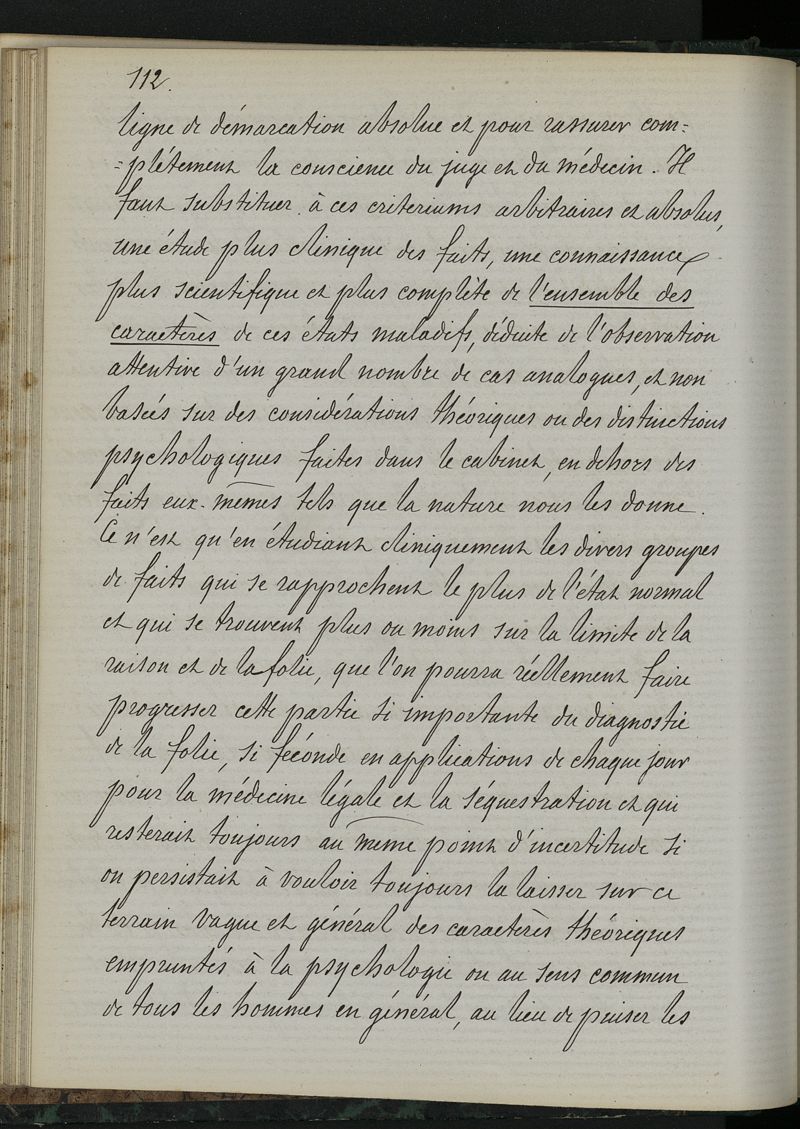 112.
ligne de démarcation absolue et pour rassurer com=
=plétement la conscience du juge et du médecin. Il
faut substituer à ces criteriums arbitraires et absolus,
une étude plus clinique des faits, une connaissance
plus scientifique et plus complète de l'ensemble des
caractères de ces états maladifs, déduite de l'observation
attentive d'un grand nombre de cas analogues, et non
basées sur des considérations théoriques ou des distinctions
psychologiques faites dans le cabinet, en dehors des
faits eux-mêmes tels que la nature nous les donne.
Ce n'est qu'en étudiant cliniquement les divers groupes
de faits qui se rapprochent le plus de l'état normal
et qui se trouvent plus ou moins sur la limite de la
raison et de la folie, que l'on pourra réellement faire
progresser cette partie si importante du diagnostic
de la folie, si féconde en applications de chaque jour
pour la médecine légale et la séquestration et qui
resterait toujours au même point d'incertitude si
on persistait à vouloir toujours la laisser sur ce
terrain vague et général des caractères théoriques
empruntés à la psychologie ou au sens commun
de tous les hommes en général, au lieu de puiser les